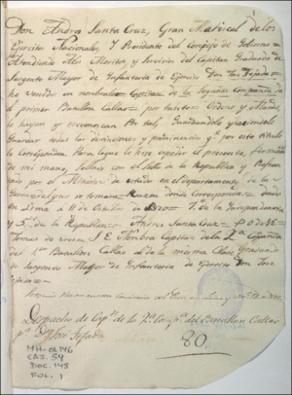 Don Andres Santa Cruz, Gran Mariscal de los
Ejercitos Nacionales, y Presidente del Consejo de Gobierno
Atendiendo alos Meritos y Servicios del Capitan Graduado de
Sargento Mayor de Infanteria de Ejercito Don José
he venido en nombrarlo Capitan de la Segunda Compañia de
el primer Batallon Callao; por tanto: Ordeno y Mando
le hayan y reconozcan por tal, Guardandole y haciendole
Guardar todas las distinciones y preeminencias qe por este titulo
le Corresponden. Para lo que le hize expedir el presente, firmado
de mi mano, Sellado con el Sello de la Republica, y Refren
por el Ministro de estado en el departamento de la
Guerra del qe se tomará Razon donde Corresponda. dado
en Lima a de Octubre de 7. de la Independencia
y 5. de la Republica. Andres Santa Cruz
S.E. Nombra Capitan de la 2a Compañia
del 1er Batallon Callao al de la misma Clase, Graduado
de Sargento Mayor de Infanteria de Ejercito Don José
Despacho de Capn de la 2a Compa del Batallon Callao
80
MH-OL 146
CAJ. 54
DOC. 143
FOL. 1